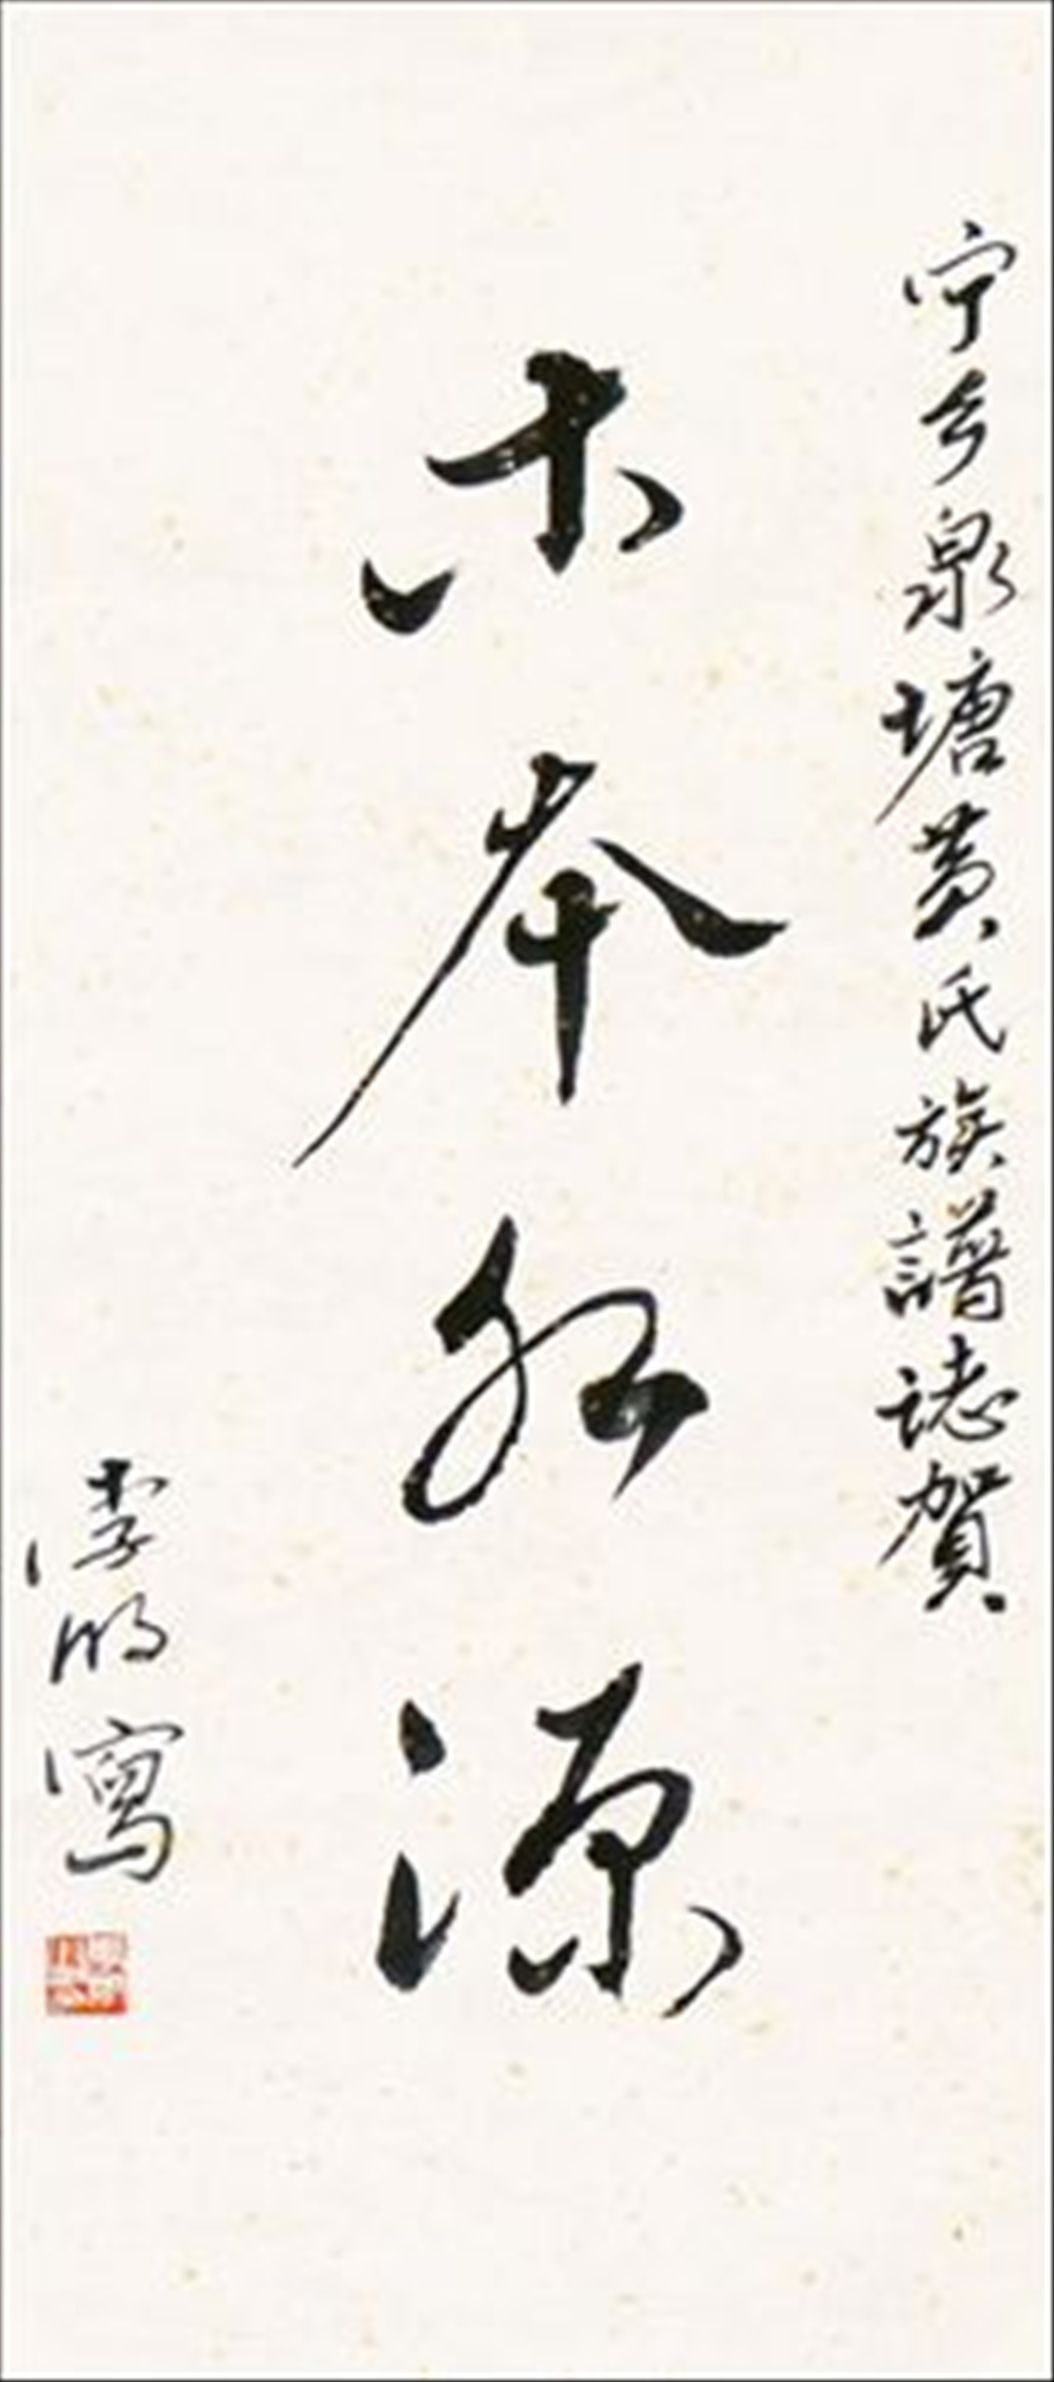 宁乡泉塘黄氏族譜誌賀
木本水源
李明寫